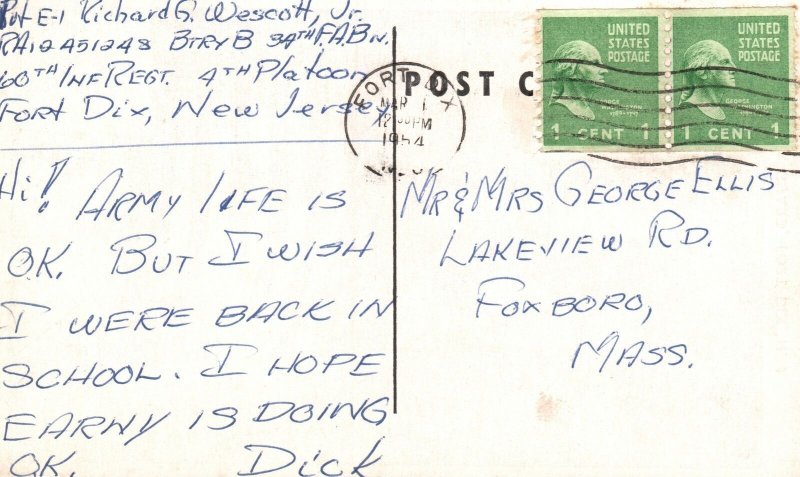 Pvt E-1 Richard G. Wescott, Jr.
RA12451248 BTRY B 34TH F.A.BN.
60TH INF REGT. 4TH Platoon
FORT DIX, NEW JERSEY
Hi! ARMY LIFE IS
OK. BUT I WISH
I WERE BACK IN
SCHOOL. I HOPE
EARNY IS DOING
OK. DICK
POST C
FORT DIX
MAR 1
12 PM
1954
UNITED
STATES
POSTAGE
GEORGE
WASHINGTON
1 CENT 1
UNITED
STATES
POSTAGE
GEORGE
WASHINGTON
1 CENT 1
MR & MRS GEORGE ELLIS
LAKEVIEW RD.
FOXBORO,
MASS.